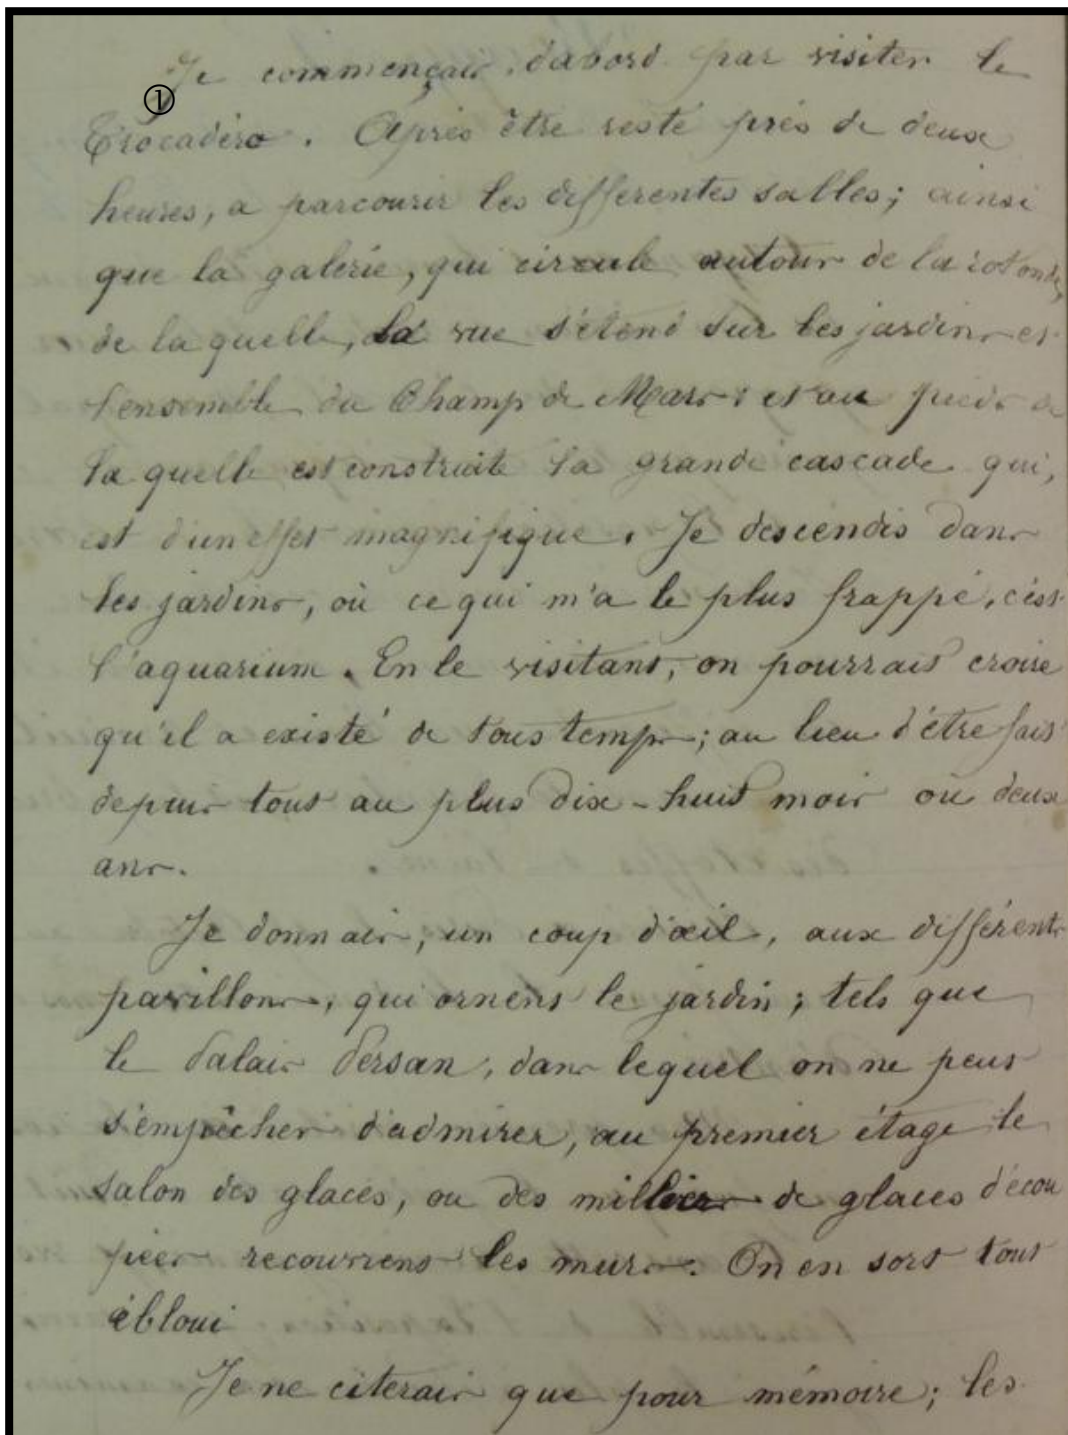 Je commençais, d'abord par visiter le
①
Trocadéro. Après être resté près de deux
heures, a parcourir les differentes salles; ainsi
que la galerie, qui circule autour de la rotonde,
de la quelle, la vue s'étend sur les jardins et
l'ensemble du Champ de Mars; et au pieds de
la quelle est construite la grande cascade qui,
est d'un effet magnifique. Je descendis dans
les jardins, où ce qui m'a le plus frappé, c'est
l'aquarium. En le visitant, on pourrait croire
qu'il a existé de tous temps; au lieu d'être fait
depuis tout au plus dix-huit mois ou deux
ans.
Je donnais, un coup d'œil, aux différents
pavillons, qui ornent le jardin; tels que
le Palais Persan, dans lequel on ne peut
s'empêcher d'admirer, au premier étage le
salon des glaces, ou des milliers de glaces décou
pées recouvrent les murs. On en sort tout
ébloui
Je ne citerais que pour mémoire; les